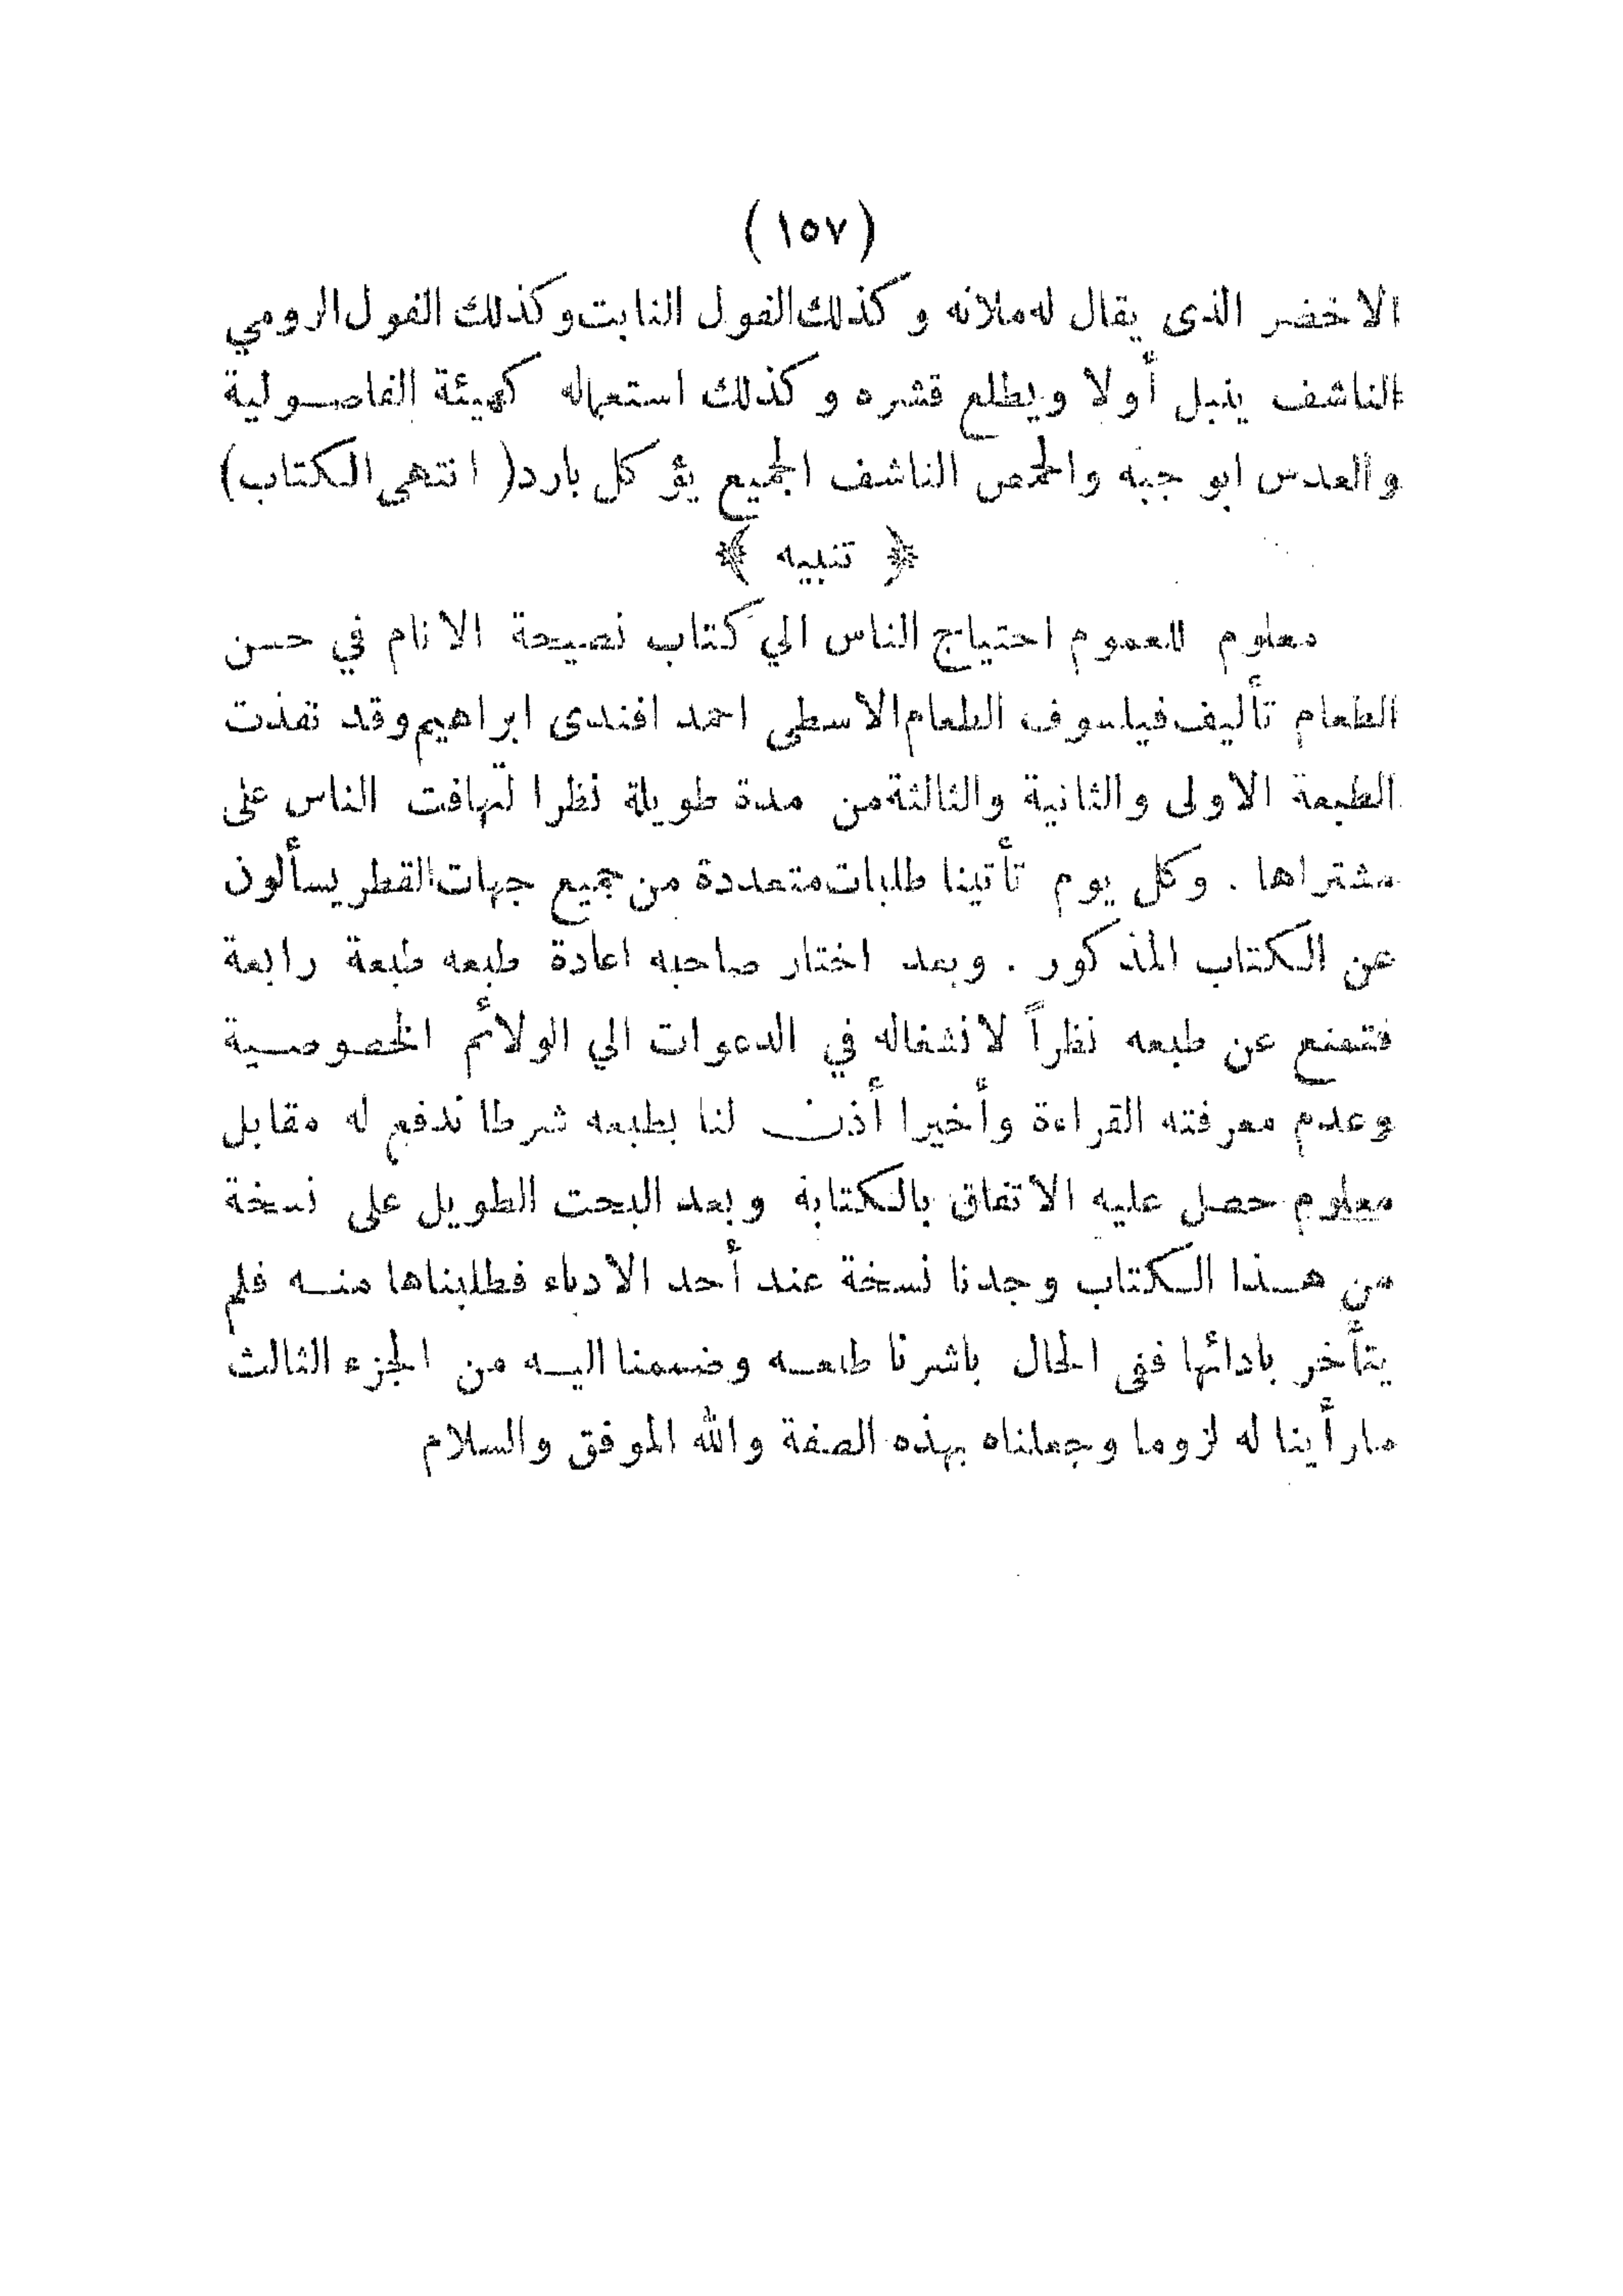 (١٥٧)
الاخضر الذى يقال له ملانه وكذلك الفول النابت وكذلك الفول الرومي
الناشف ينبل أولا ويطلع قشره وكذلك استعماله كهيئة الفاصولية
والعدس ابو جبه والحمص الناشف الجميع يؤكل بارد (انتهى الكتاب)
﴿ تنبيه ﴾
معلوم للعموم احتياج الناس الي كتاب نصيحة الانام في حسن
الطعام تأليف فيلسوف الطعام الاسطى احمد افندى ابراهيم وقد نفذت
الطبعة الاولى والثانية والثالثة من مدة طويلة نظرا لتهافت الناس على
مشتراها . وكل يوم تأتينا طلبات متعددة من جميع جهات القطر يسألون
عن الكتاب المذكور . وبعد اختار صاحبه اعادة طبعه طبعة رابعة
فتمنع عن طبعه نظراً لانشغاله في الدعوات الي الولائم الخصوصية
وعدم معرفته القراءة وأخيرا أذن لنا بطبعه شرطا ندفع له مقابل
معلوم حصل عليه الاتفاق بالكتابة وبعد البحت الطويل على نسخة
من هذا الكتاب وجدنا نسخة عند أحد الادباء فطلبناها منه فلم
يتأخر بادائها ففى الحال باشرنا طبعه وضممنا اليه من الجزء الثالث
مارأينا له لزوما وجعلناه بهذه الصفة والله الموفق والسلام